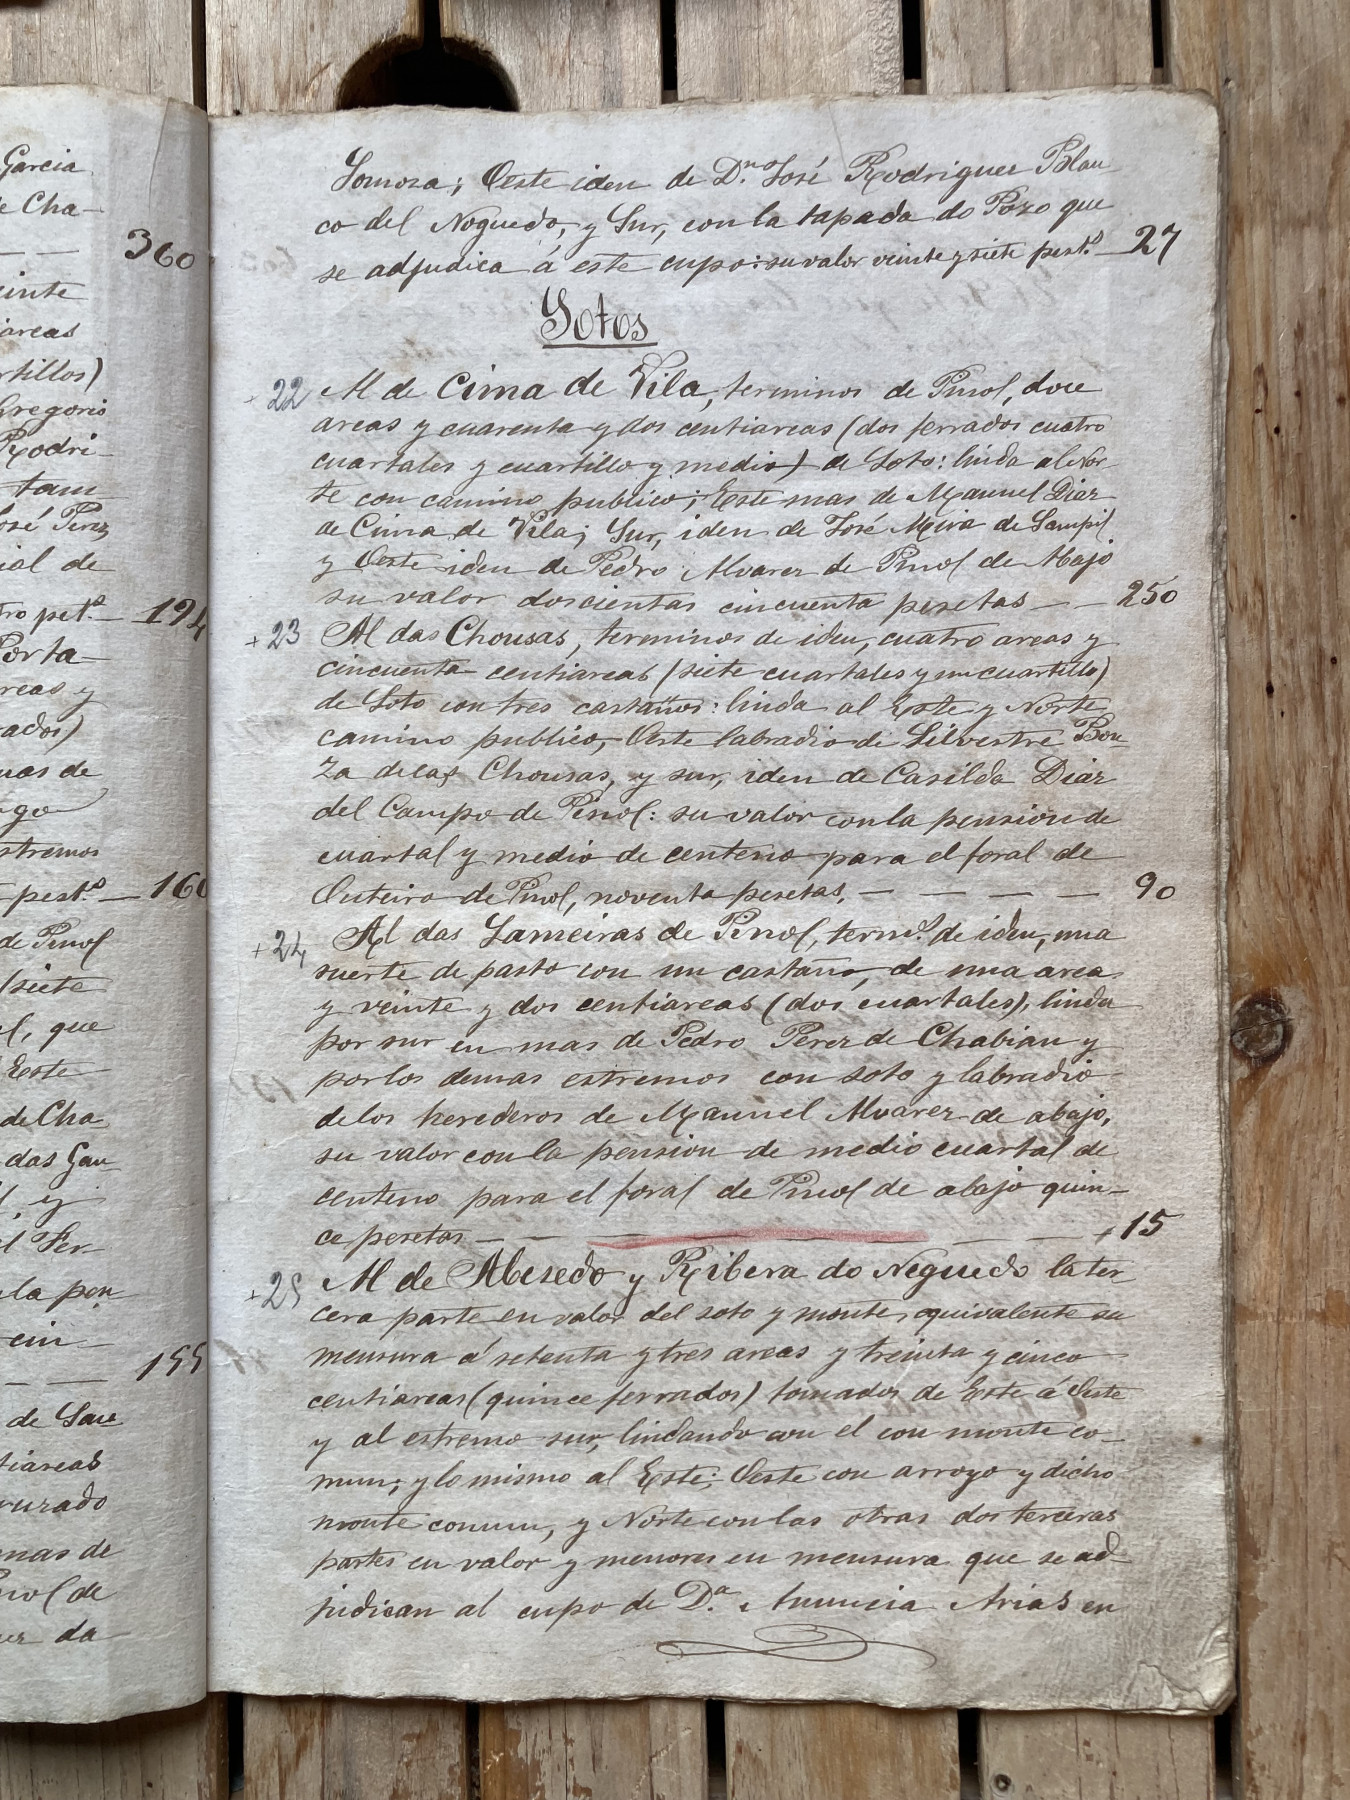 Garcia
de Cha-
360
einte
areas
rtillos)
Gregorio
Rodri-
tam
José Perez
ial de
tro pet.ˢ 194
Porta-
reas y
ados)
mas de
go
stremos
pest.ˢ 160
de Pinol
(siete
l, que
Este
de Cha
das Gan
y
el Fer-
la pen
cin-
155
de Sau
tiareas
ruzado
mas de
nol de
da
Somoza; Oeste iden de D.ⁿ José Rodriguez Blan
co del Noguedo, y Sur, con la tapada do Pozo que
se adjudica á este cupo: su valor veinte y siete pest.ˢ 27
Sotos
+22 Al de Cima de Vila, terminos de Pinol, doce
areas y cuarenta y dos centiareas (dos ferrados cuatro
cuartales y cuartillo y medio) de Soto: linda al Nor
te con camino publico; Este mas de Manuel Diaz
de Cima de Vila; Sur, iden de José Meira de Sampil
y Oeste iden de Pedro Alvarez de Pinol de Abajo
su valor doscientas cincuenta pesetas — — 250
+23 Al das Chousas, terminos de iden, cuatro areas y
cincuenta centiareas (siete cuartales y un cuartillo)
de Soto con tres castaños: linda al Este y Norte,
camino publico, Oeste labradio de Silvestre Bou-
za de las Chousas, y sur, iden de Casilda Diaz
del Campo de Pinol: su valor con la pension de
cuartal y medio de centeno para el foral de
Outeiro de Pinol, noventa pesetas, — — — — 90
+24 Al das Lameiras de Pinol, term.ˢ de iden, una
suerte de pasto con un castaño, de una area
y veinte y dos centiareas (dos cuartales), linda
por sur en mas de Pedro Perez de Chabian y
por los demas estremos con soto y labradio
de los herederos de Manuel Alvarez de abajo,
su valor con la pension de medio cuartal de
centeno para el foral de Pinol de abajo quin-
ce pesetas — — — — — — + 15
+25 Al de Abesedo y Ribera do Noguedo la ter
cera parte en valor del soto y monte, equivalente su
mensura á setenta y tres areas y treinta y cinco
centiareas (quince ferrados) tomados de Este á Oeste
y al estremo sur, lindando con el con monte co-
mun; y lo mismo al Este; Oeste con arroyo y dicho
monte comun, y Norte con las otras dos terceras
partes en valor y menores en mensura que se ad-
judican al cupo de D.ᵃ Amuncia Arias en